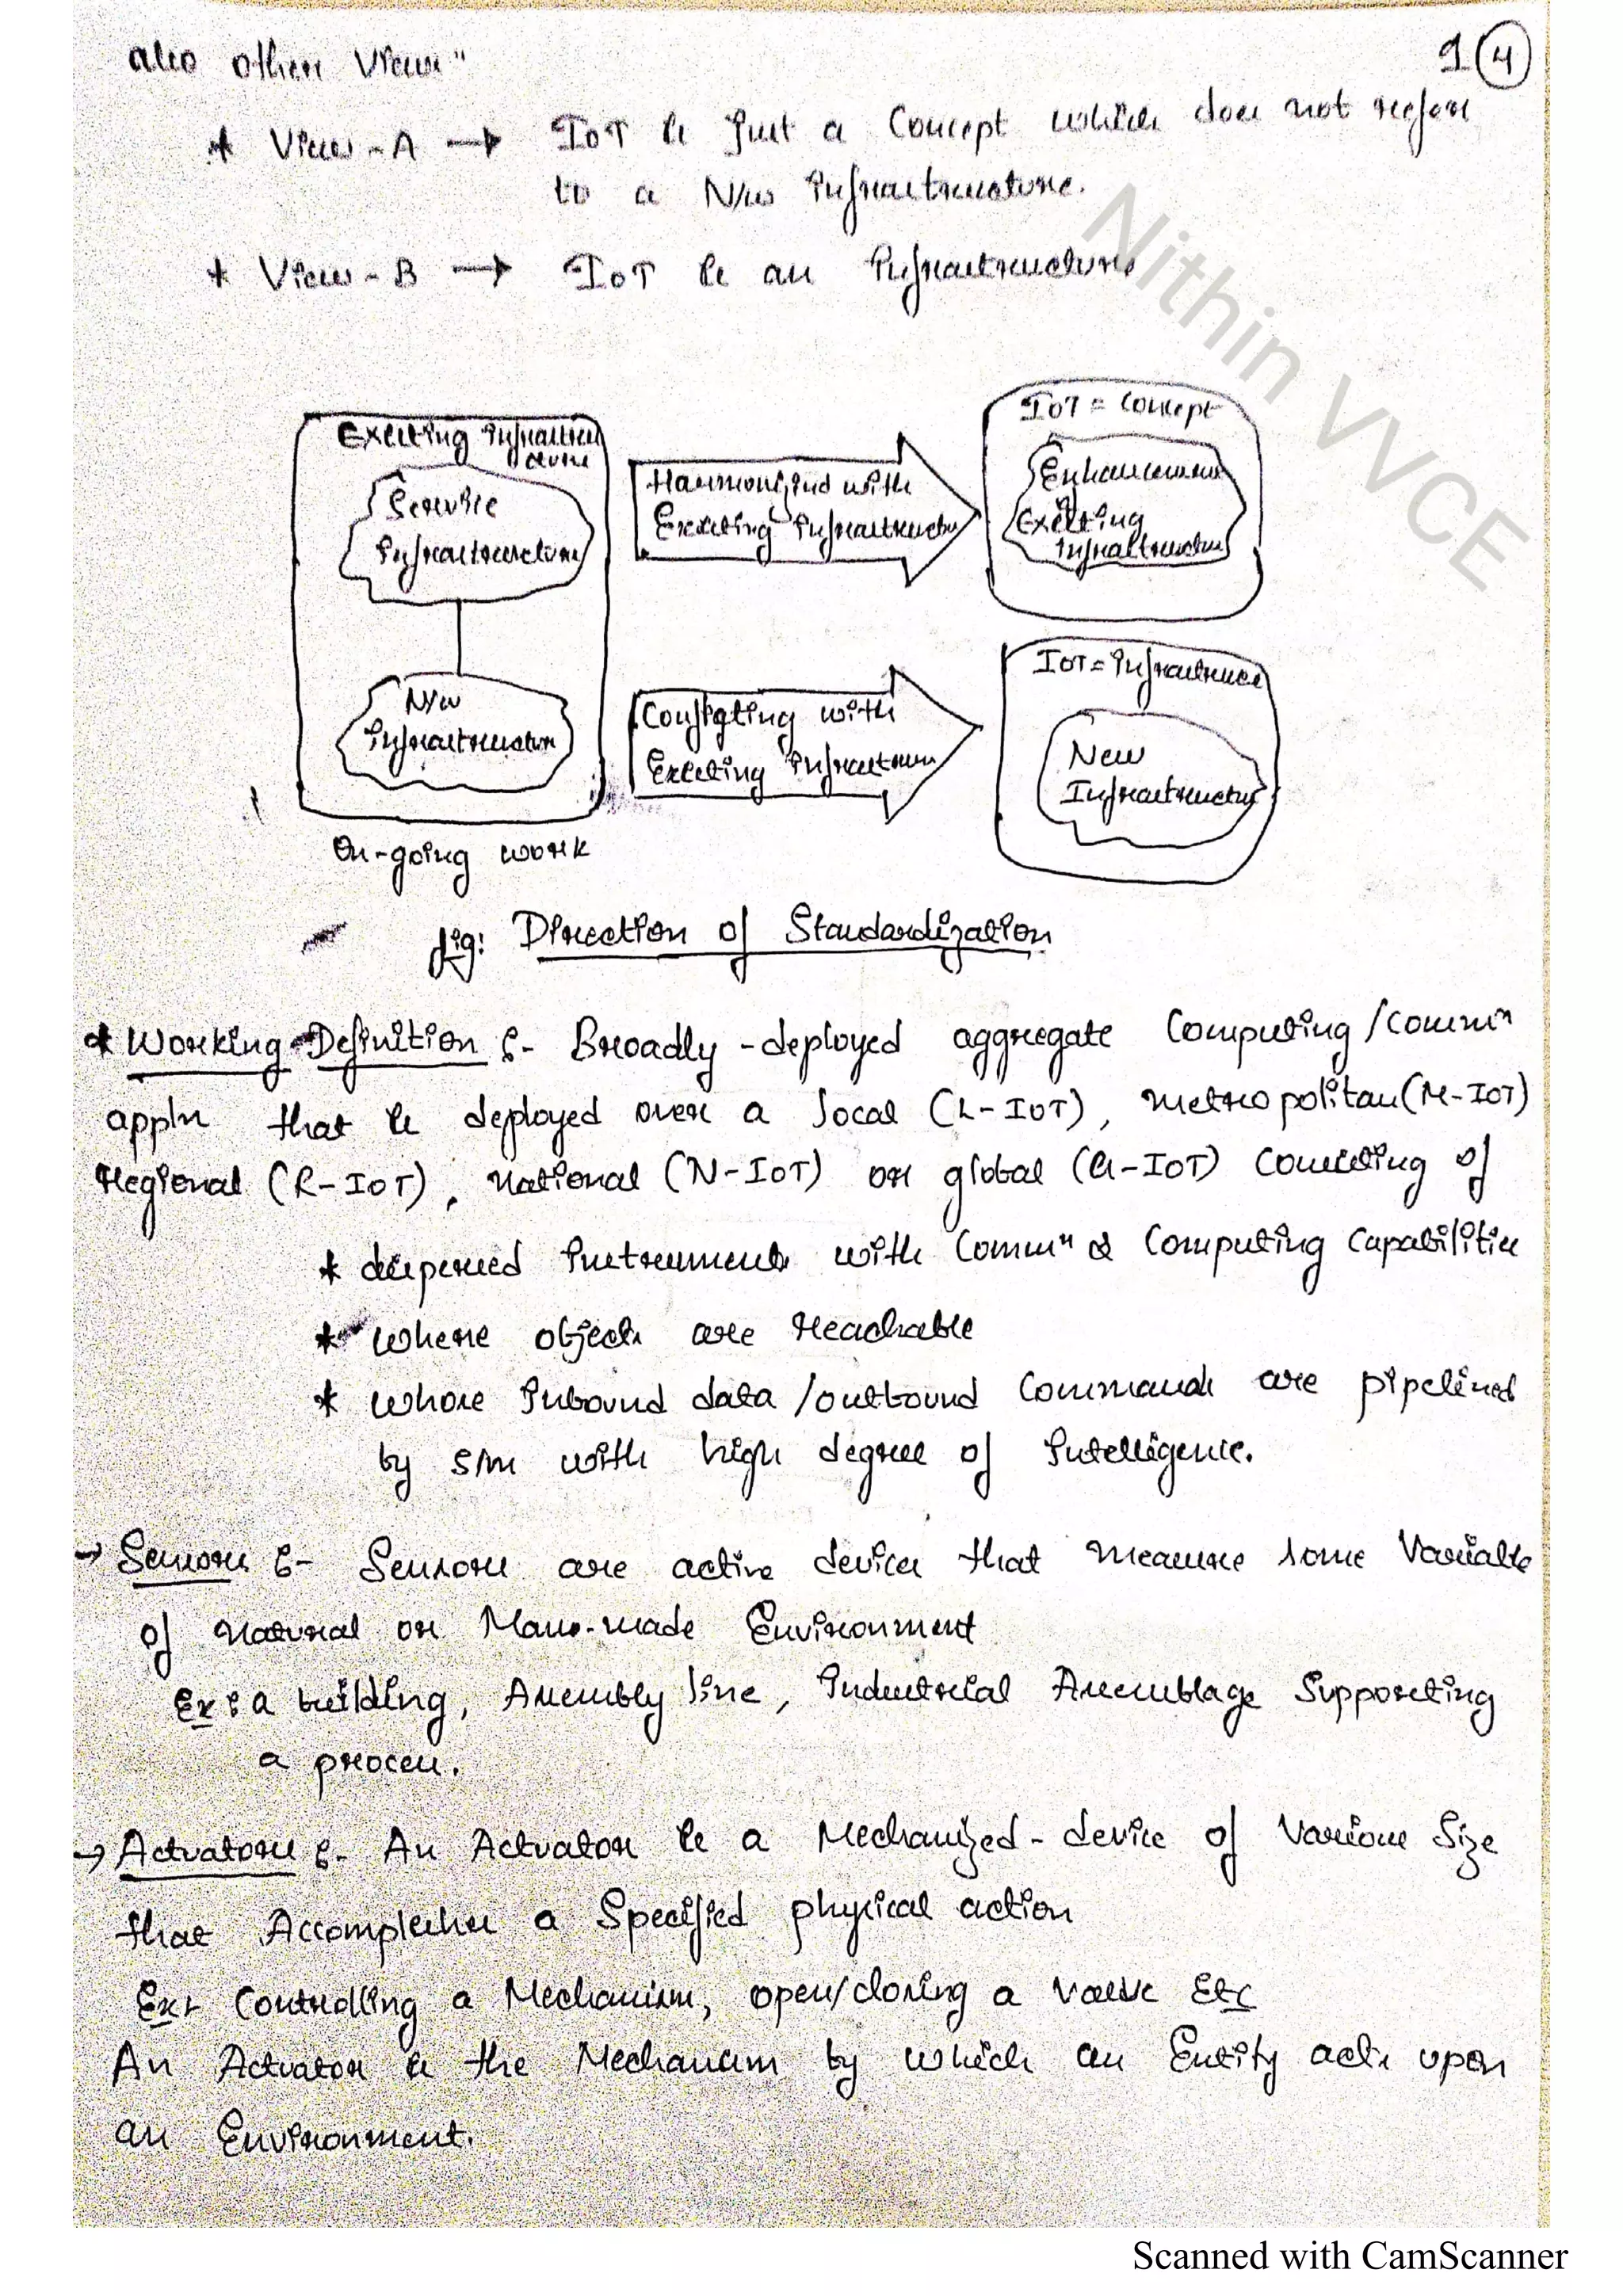 also other views"
1 4
* View-A → IoT is just a Concept which does not refers
to a N/w Infrastructure.
* View-B → IoT is an Infrastructure
Nithin VVCE
Existing Infrastruc
cture
Service
Infrastructure
N/w
Infrastructure
On-going work
Harmonized with
Existing Infrastructu
Conflicting with
Existing Infrastruc
IoT = Concept
Enhancement
of
Existing
Infrastructure
IoT = Infrastructure
New
Infrastructure
fig: Direction of Standardization
* Working Definition :- Broadly-deployed aggregate Computing/commⁿ
appln that is deployed over a local (L-IoT), metropolitan (M-IoT)
Regional (R-IoT), national (N-IoT) or global (G-IoT) consisting of
* dispersed instruments with Commⁿ & Computing Capabilities
* where objects are reachable
* whose inbound data/outbound Commands are pipelined
by s/m with high degree of intelligence.
→ Sensors :- Sensors are active devices that measure some Variable
of natural or Man-made Environment
Ex: a building, Assembly line, Industrial Assemblage Supporting
a process.
→ Actuators :- An Actuator is a Mechanized-device of Various Size
that Accomplishes a Specified physical action
Ex: Controlling a Mechanism, open/closing a valve Etc
An Actuator is the Mechanism by which an Entity acts upon
an Environment.
Scanned with CamScanner